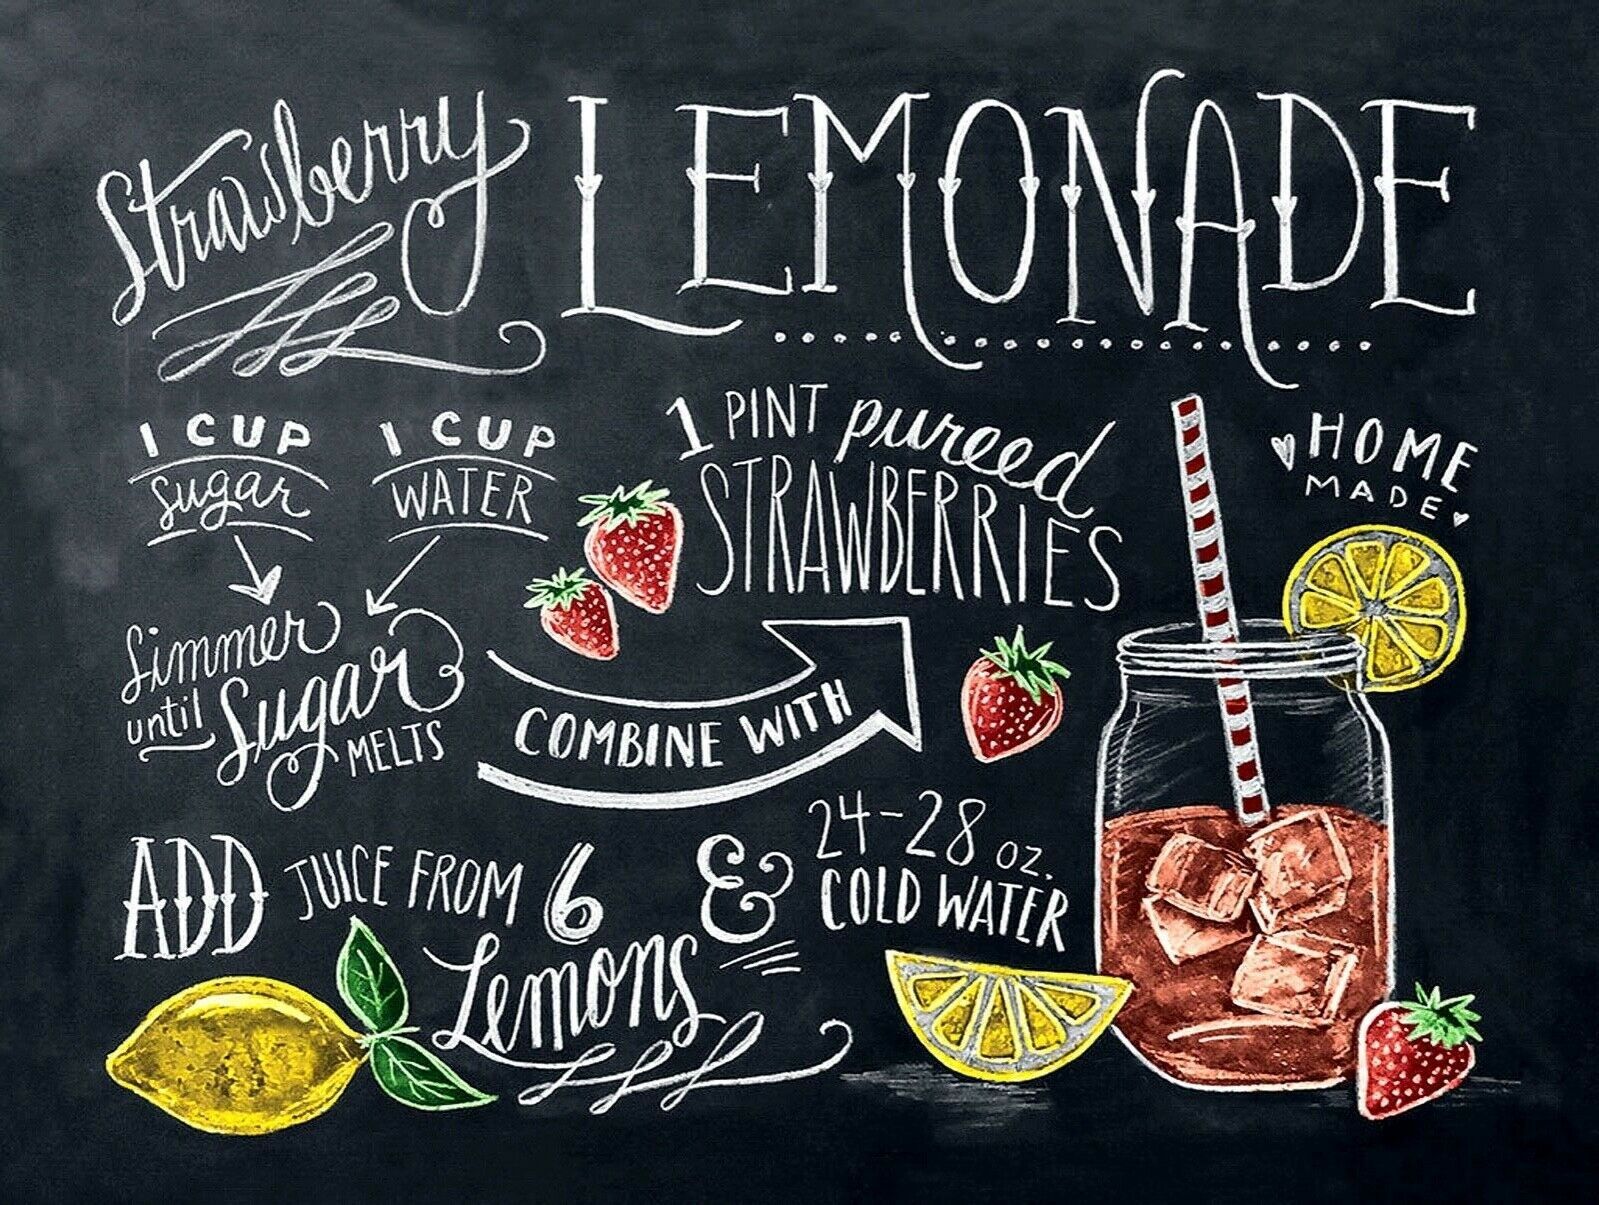 Strawberry LEMONADE
1 CUP
sugar
1 CUP
WATER
Simmer
until Sugar
MELTS
COMBINE WITH
1 PINT pureed
STRAWBERRIES
HOME
MADE
ADD JUICE FROM 6
Lemons
&
24-28 oz.
COLD WATER